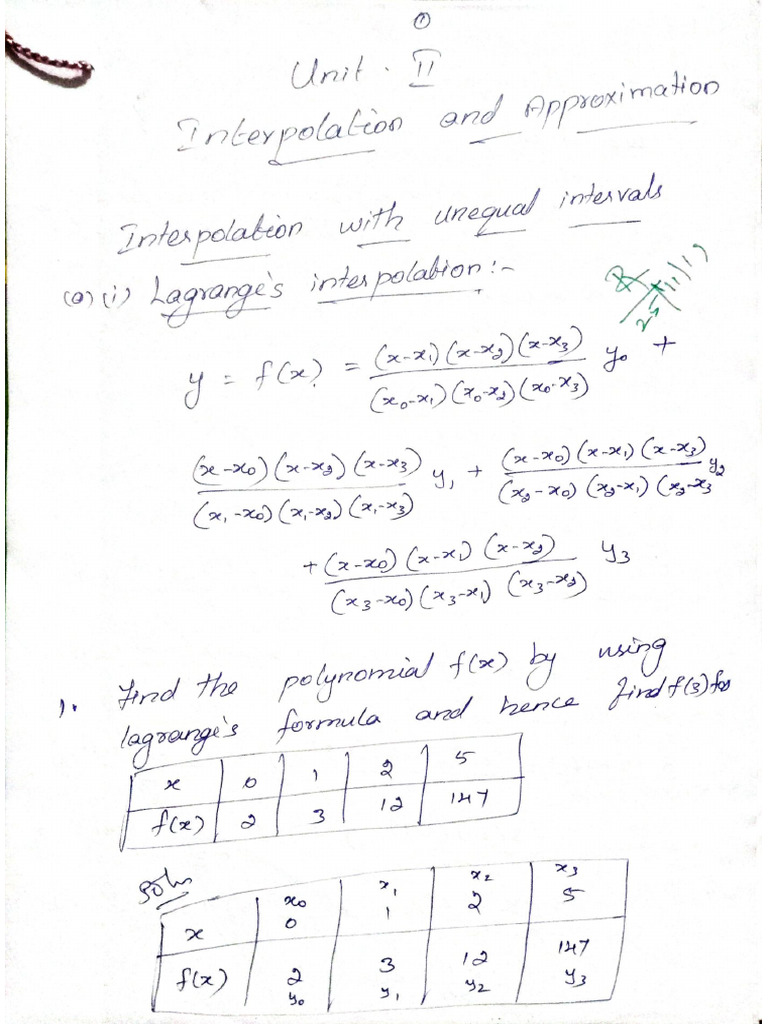 ①
Unit - II
Interpolation and Approximation
Interpolation with unequal intervals
(a) (i) Lagrange's interpolation:-
y = f(x) = (x-x₁)(x-x₂)(x-x₃) / (x₀-x₁)(x₀-x₂)(x₀-x₃) y₀ +
(x-x₀)(x-x₂)(x-x₃) / (x₁-x₀)(x₁-x₂)(x₁-x₃) y₁ + (x-x₀)(x-x₁)(x-x₃) / (x₂-x₀)(x₂-x₁)(x₂-x₃ y₂
+ (x-x₀)(x-x₁)(x-x₂) / (x₃-x₀)(x₃-x₁)(x₃-x₂) y₃
1. Find the polynomial f(x) by using
lagrange's formula and hence find f(3) for
x 0 1 2 5
f(x) 2 3 12 147
Soln
x₀ x₁ x₂ x₃
x 0 1 2 5
f(x) 2 3 12 147
y₀ y₁ y₂ y₃